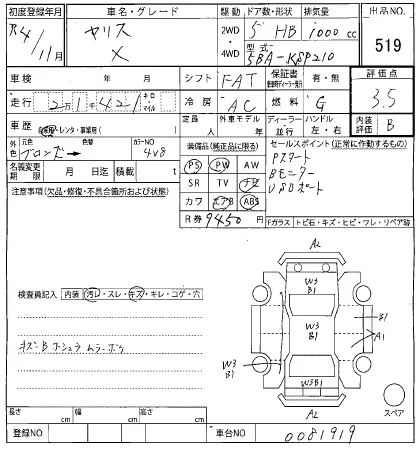 初度登録年月 車名・グレード 駆動 ドア数・形状 排気量 出品NO
R4/11月 ヤリス X 2WD 4WD 5 HB 1000cc 519
型式 5BA-KSP210
車検 年 月 シフト FAT 保証書 有・無 評価点
走行 2万1千421 キロ マイル 冷房 AC 燃料 G 3.5
車歴 自家用・レンタ・事業用( ) 定員 人 外車モデル 年 ディーラー 並行 ハンドル 左・右 内装評価 B
外色 元色 ブロンズ→ 色替 カラーNO 4V8
名義変更期限 月 日 積載 t
装備品(純正品に限る) セールスポイント(正常に作動するもの)
PS PW AW Pスタート
SR TV ナビ Bモニター
カワ エアB ABS USBポート
R券 9450円
注意事項(欠品・修復・不具合箇所および状態)
Fガラス トビ石・キズ・ヒビ・ワレ・リペア跡
検査員記入 内装 汚レ・スレ・キズ・キレ・コゲ・穴
キズB ホシュウ ムラ・ボケ
A2
W3
B1
W3
B1
B1
A1
W3
B1
W3B1
A2
スペア
長さ cm 幅 cm 高さ cm
登録NO 車台NO 0081919